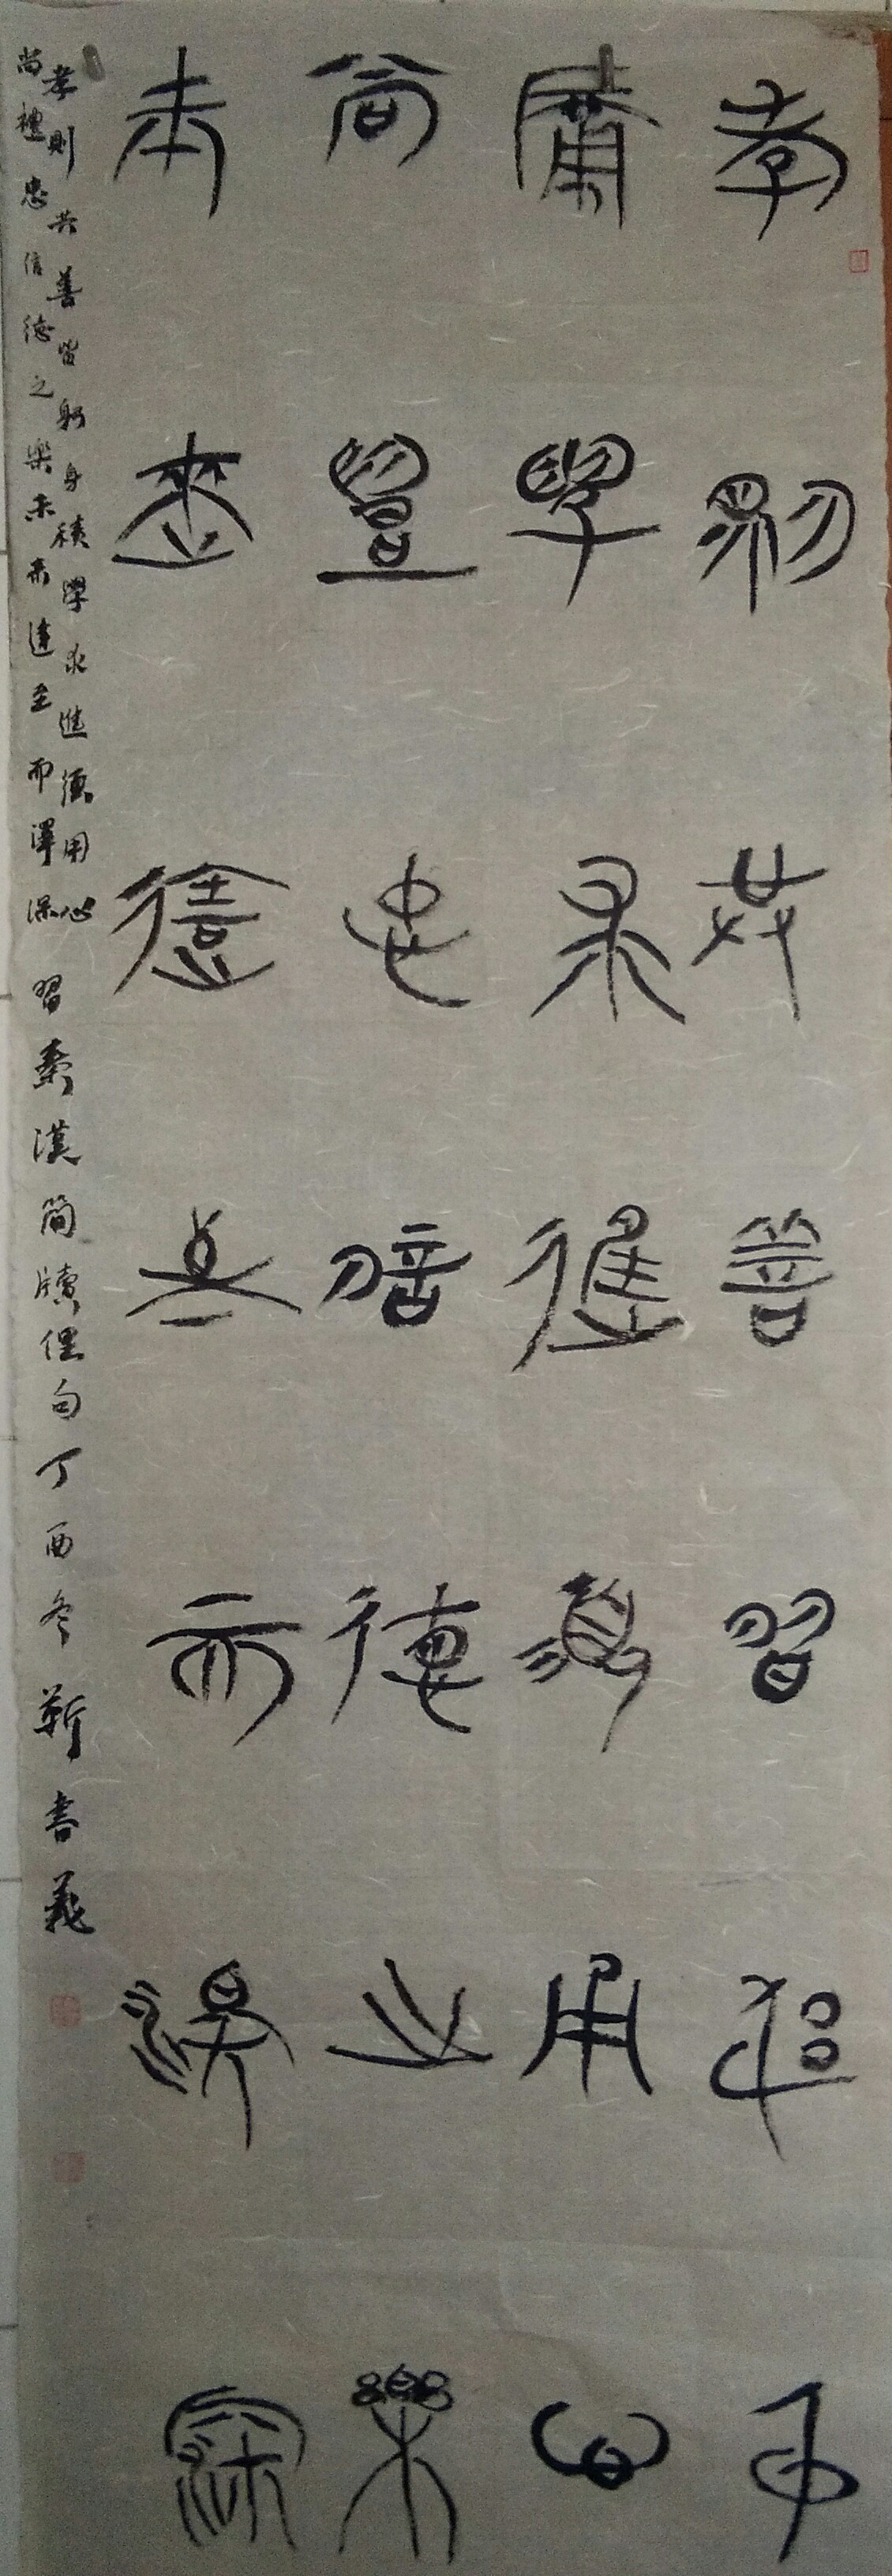 孝則共善習躬身
積學求進須用心
尚禮忠信德之樂
未來遠至而澤深
孝則共善習躬身積學求進須用心
尚禮忠信德之樂未來遠至而澤深
習秦漢簡牘俚句丁酉冬靳書義